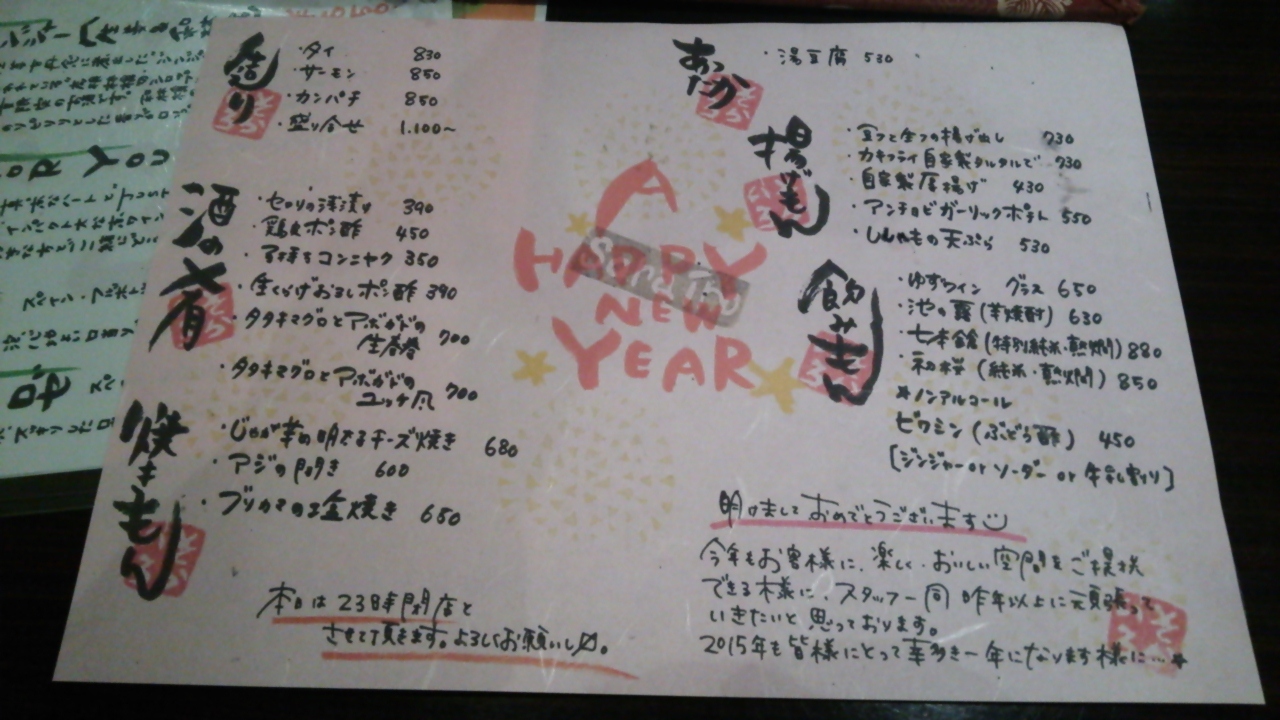 造り
・タイ 830
・サーモン 850
・カンパチ 850
・盛り合せ 1.100~
酒の肴
・セロリの浅漬け 390
・鶏皮ポン酢 450
コンニャク 350
・生くらげおろしポン酢 390
・タタキマグロとアボカドの
生春巻 700
・タタキマグロとアボカドの
ユッケ風 700
焼きもん
・じゃが芋の明太チーズ焼き 680
・アジの開き 600
・ブリカマの塩釜焼き 650
本日は23時閉店と
させて頂きます。よろしくお願いし〼。
A
HAPPY
NEW
YEAR
あったか
・湯豆腐 530
揚げもん
揚げ出し 730
・カキフライ自家製タルタルで 730
・自家製厚揚げ 430
・アンチョビガーリックポテト 550
・ししゃもの天ぷら 530
飲みもん
・ゆずワイン グラス 650
・池の露(芋焼酎) 630
・七本鎗(特別純米・熱燗) 880
・初桜(純米・熱燗) 850
★ノンアルコール
ビワミン(ぶどう酢) 450
[ジンジャー or ソーダー or 牛乳割り]
明けましておめでとうございます
今年もお客様に、楽しく・おいしい空間をご提供
できる様に、スタッフ一同 昨年以上に頑張って
いきたいと思っております。
2015年も皆様にとって幸多き一年になります様に…★